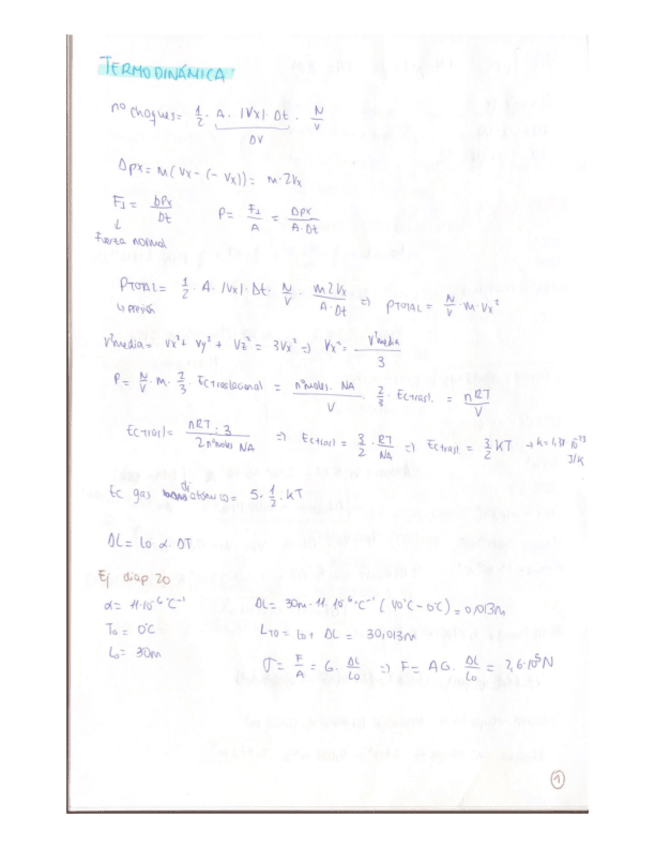 TERMODINÁMICA
nº choques = 1/2 · A · |Vx| · Dt · N/V
DV
Dpx = m(Vx - (-Vx)) = m·2Vx
F⊥ = DPx/Dt    P = F⊥/A = Dpx/(A·Dt)
↓
Fuerza normal
PTOTAL = 1/2 · A · |Vx| · Dt · N/V · m2Vx/(A·Dt) => PTOTAL = N/V · m · Vx²
↳ presión
V²media = Vx² + Vy² + Vz² = 3Vx² => Vx² = V²media/3
P = N/V · m · 2/3 · Ectraslacional = nºmoles · NA/V · 2/3 · Ectrasl. = nRT/V
Ectrasl = nRT·3/(2nºmoles NA) => Ectrasl = 3/2 · RT/NA => Ectrasl = 3/2 KT → k = 1,38 · 10⁻²³ J/K
Ec gas diatómico = 5 · 1/2 · KT
DL = Lo α · DT
Ej diap 20
α = 11·10⁻⁶ ºC⁻¹    DL = 30m · 11·10⁻⁶ ºC⁻¹ (40ºC - 0ºC) = 0,013m
To = 0ºC    LTO = Lo + DL = 30,013m
Lo = 30m    σ = F/A = G · DL/Lo => F = AG · DL/Lo = 2,6·10⁵N
1